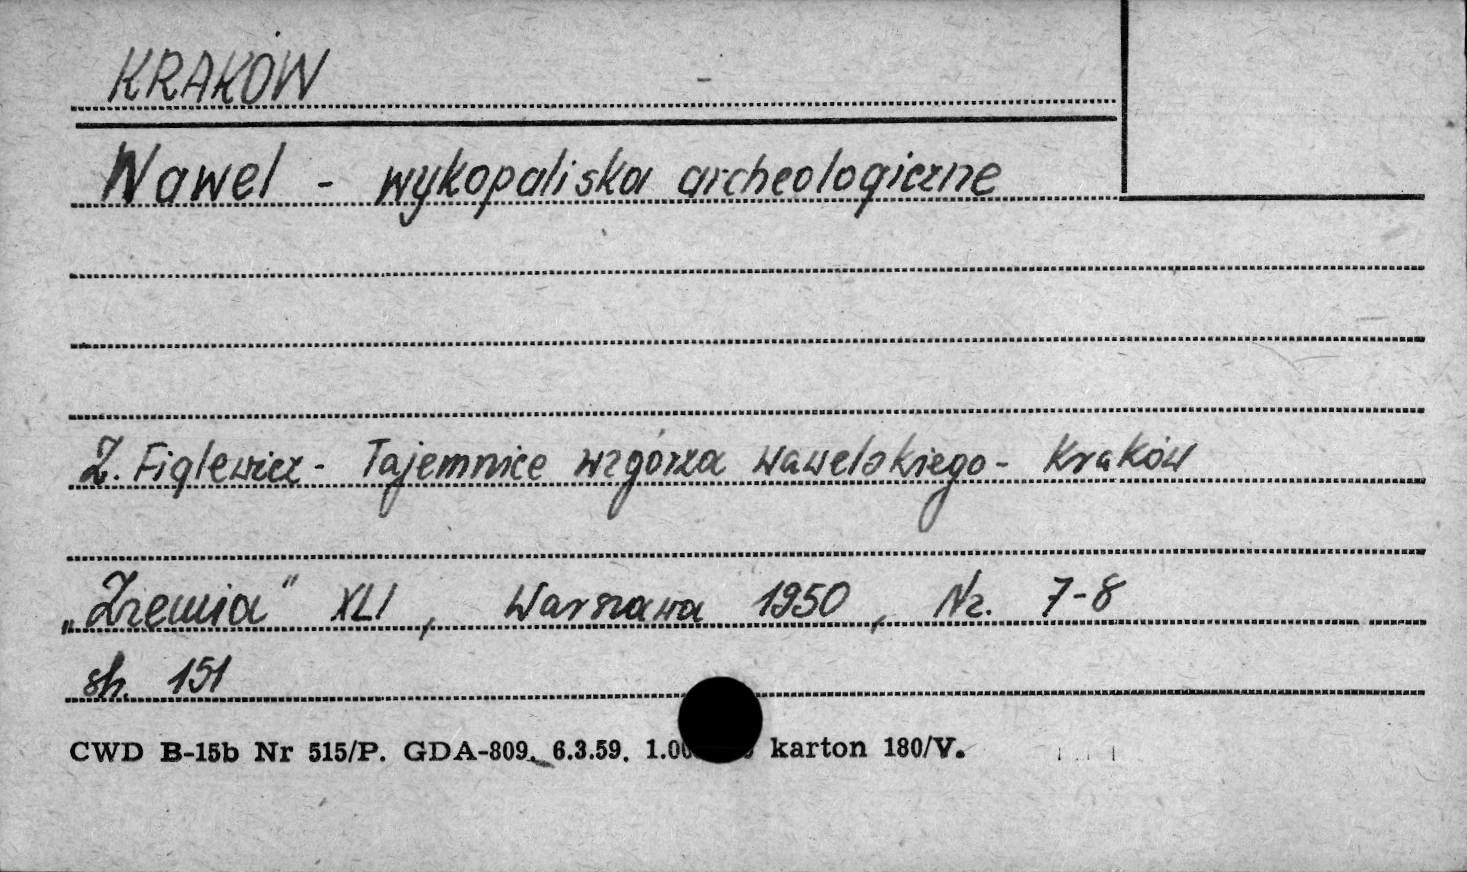 KRAKÓW
Wawel - wykopaliska archeologiczne
Z. Figlewicz - Tajemnice wzgórza wawelskiego - Kraków
„Ziemia" XLI, Warszawa 1950, Nr. 7-8
str. 151
CWD B-15b Nr 515/P. GDA-809. 6.3.59. karton 180/V.